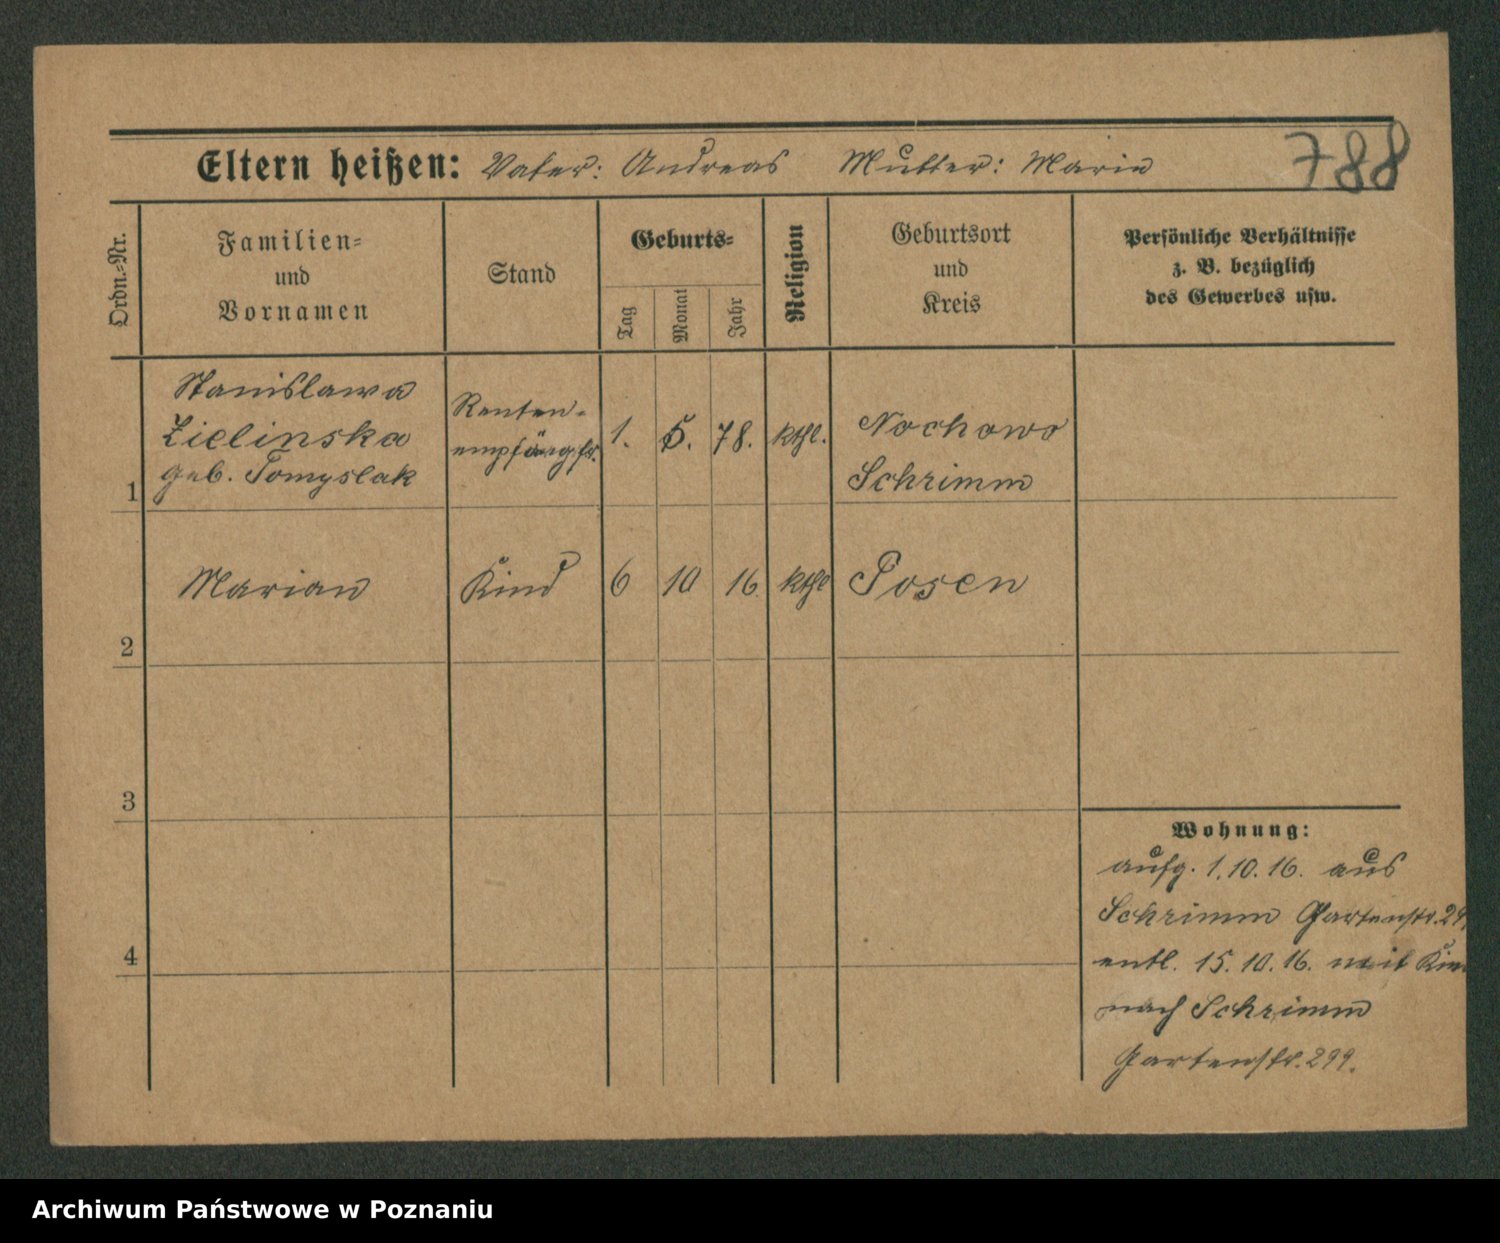 788
Eltern heißen: Vater: Andreas Mutter: Maria
Ordn.=Nr.
Familien=
und
Vornamen
Stand
Geburts=
Tag
Monat
Jahr
Religion
Geburtsort
und
Kreis
Persönliche Verhältnisse
z. B. bezüglich
des Gewerbes usw.
1
Stanislawa
Zielinska
geb. Tomyslak
Renten-
empfängfr.
1. 5. 78. kthl.
Nochowo
Schrimm
2
Marian Kind 6 10 16. kthl Posen
3
4
Wohnung:
aufg. 1.10.16. aus
Schrimm Gartenstr. 29
entl. 15.10.16. mit
nach Schrimm
Gartenstr. 299.
Archiwum Państwowe w Poznaniu